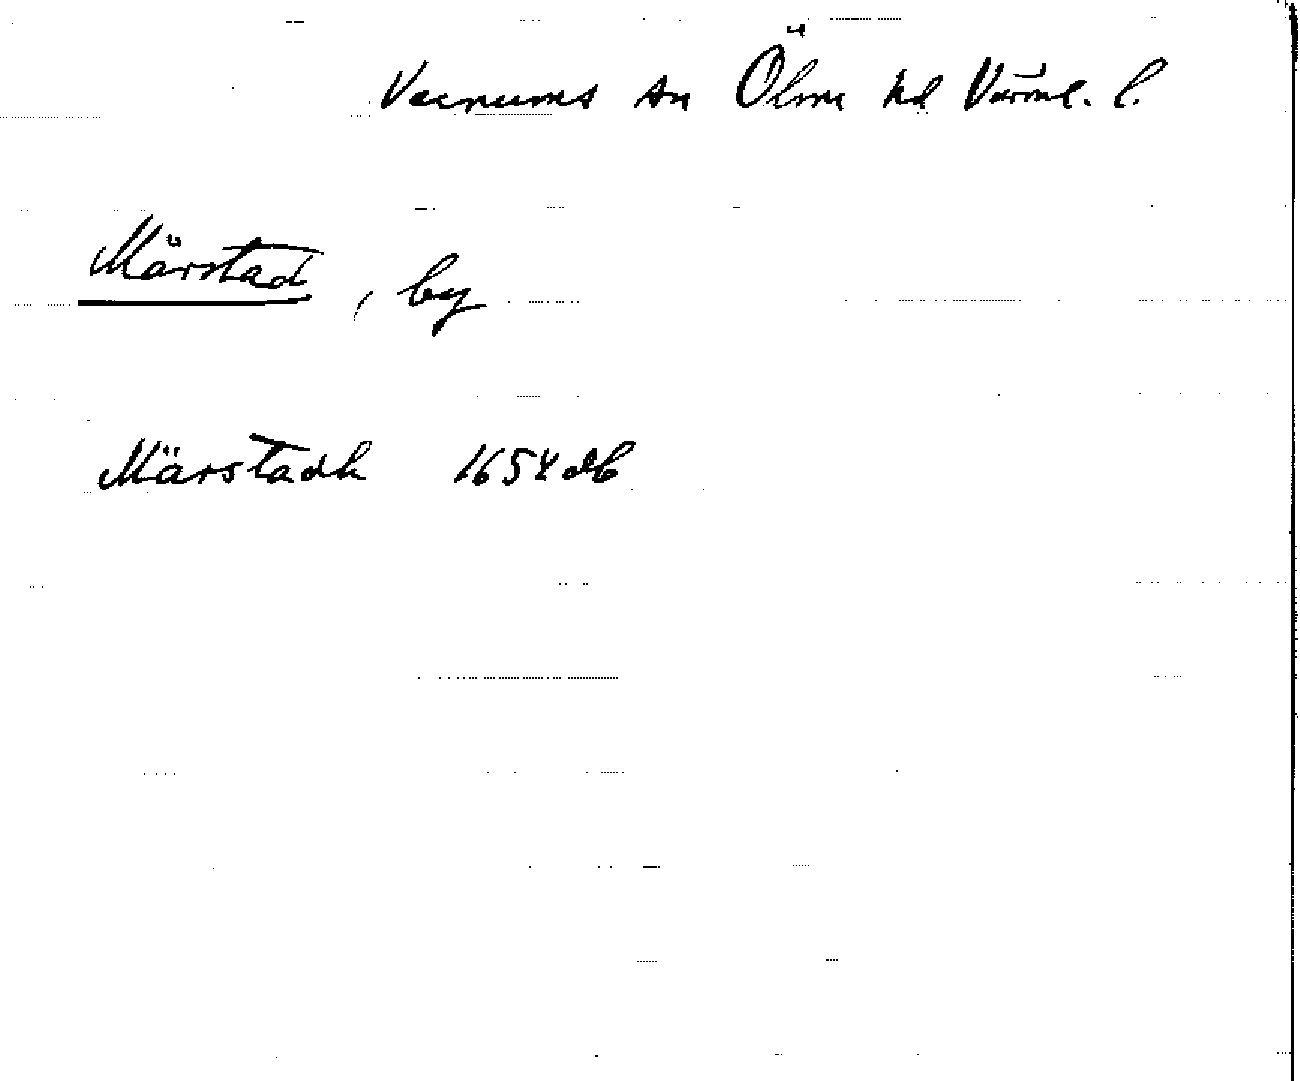 Varnums sn Ölme hd Värml. l.
Märstad, by
Märstadh 1654 db